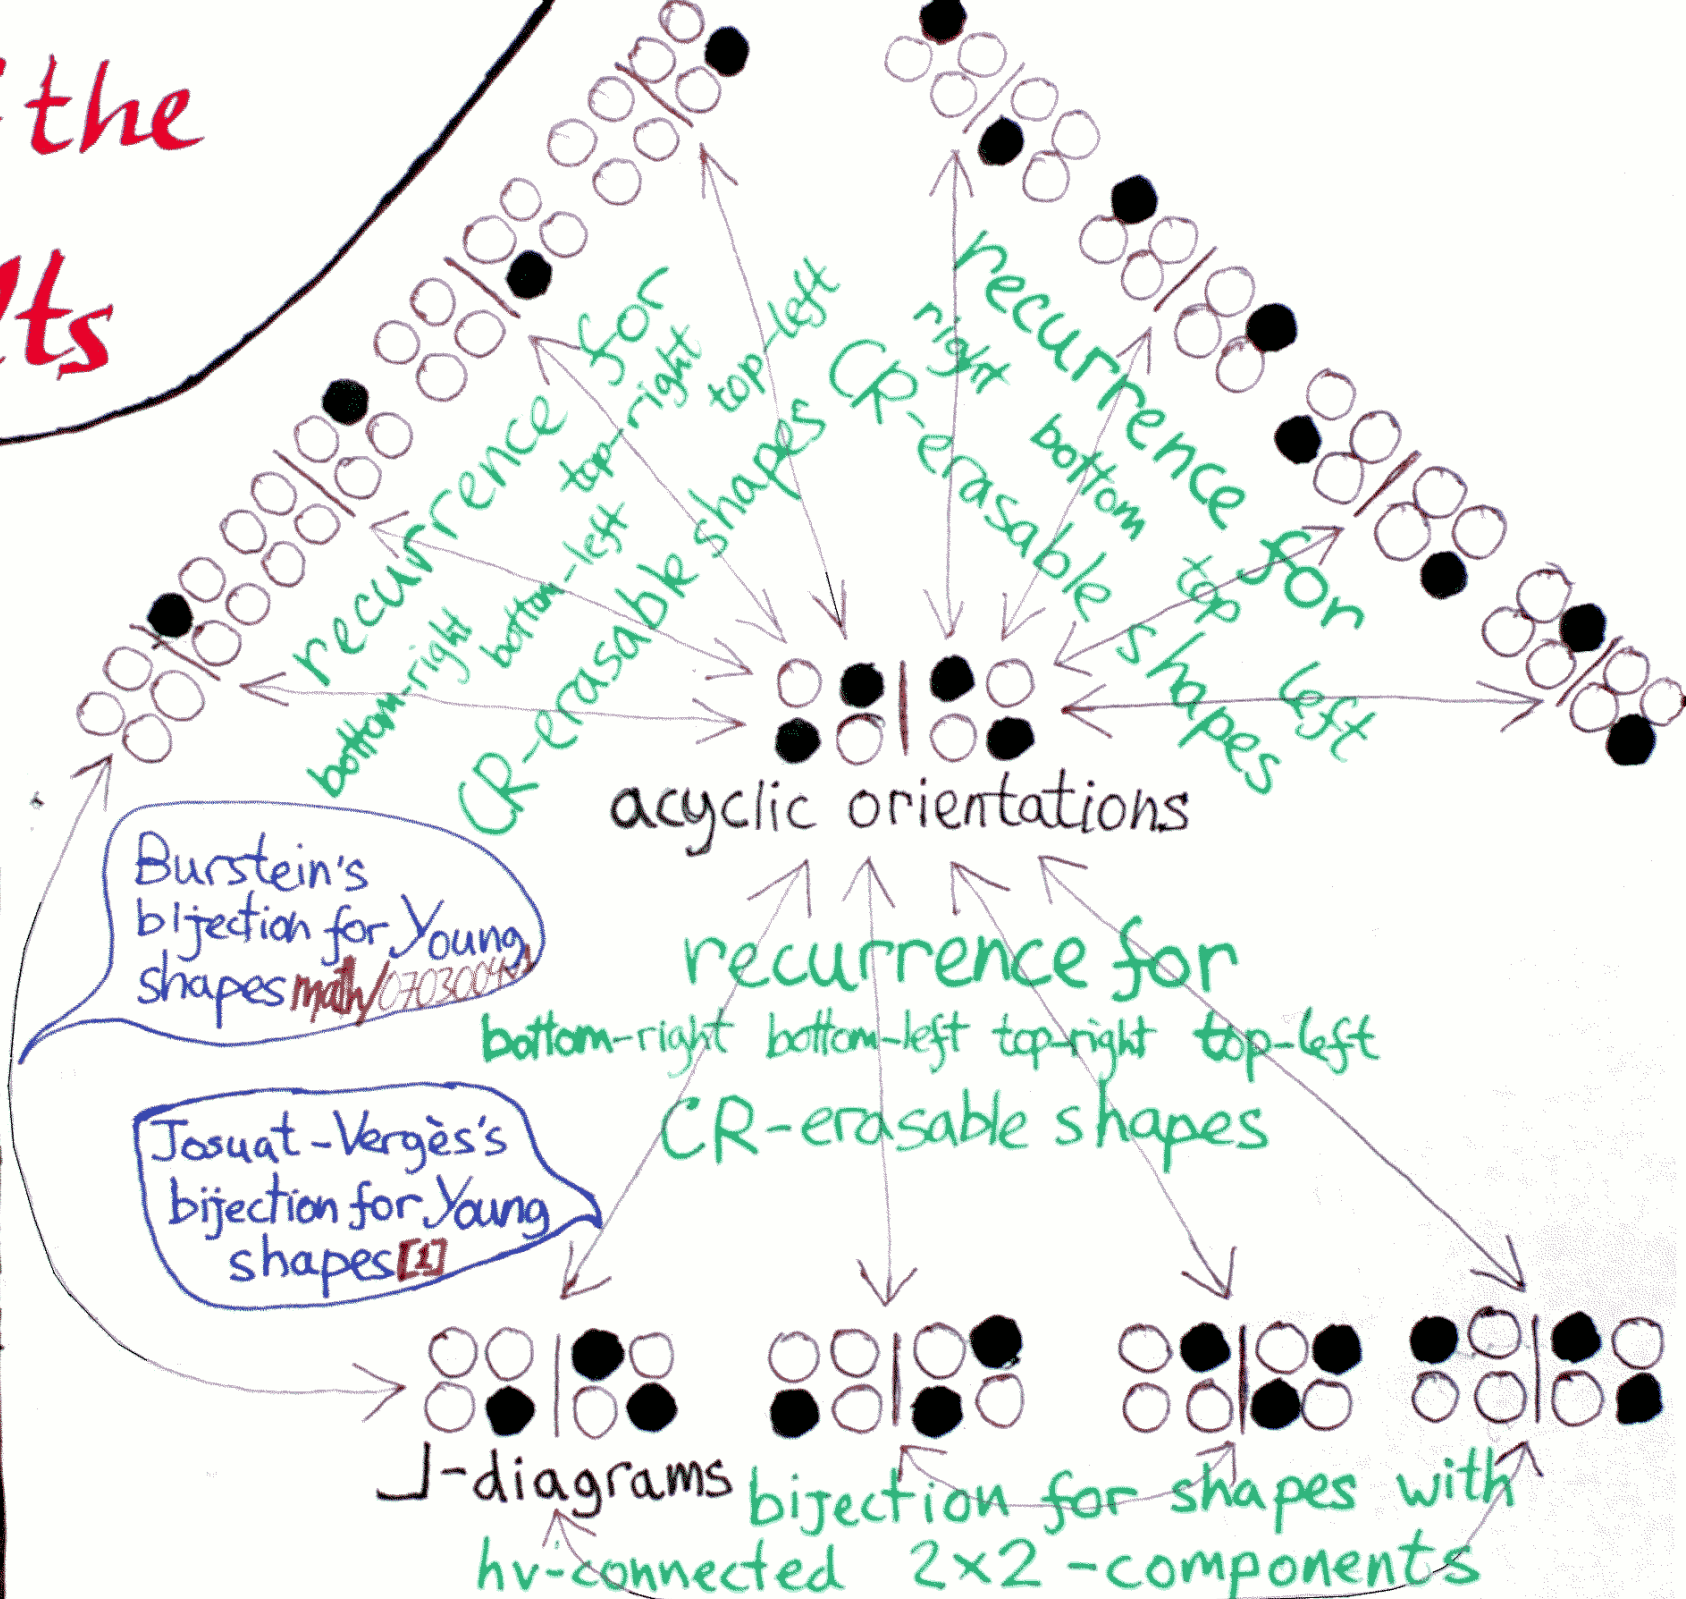 the
recurrence for
top-right top-left
bottom-right bottom-left
CR-erasable shapes
recurrence for
right bottom top left
CR-erasable shapes
acyclic orientations
Burstein's
bijection for Young
shapes math/0703004v1
recurrence for
bottom-right bottom-left top-right top-left
CR-erasable shapes
Josuat-Vergès's
bijection for Young
shapes [1]
⅃-diagrams
bijection for shapes with
hv-connected 2×2-components